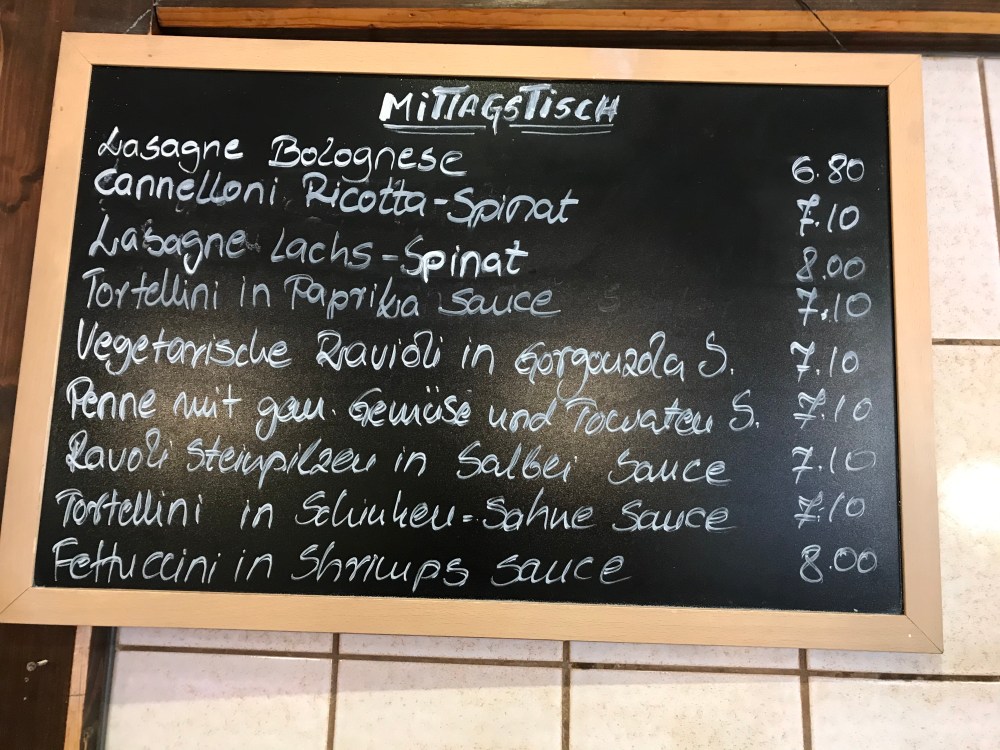 MiTTAGSTiSCH
Lasagne Bolognese 6.80
Cannelloni Ricotta-Spinat 7.10
Lasagne Lachs-Spinat 8.00
Tortellini in Paprika Sauce 7.10
Vegetarische Ravioli in Gorgonzola S. 7.10
Penne mit gem. Gemüse und Tomaten S. 7.10
Ravoli Steinpilzen in Salbei Sauce 7.10
Tortellini in Schinken-Sahne Sauce 7.10
Fettuccini in Shrimps Sauce 8.00